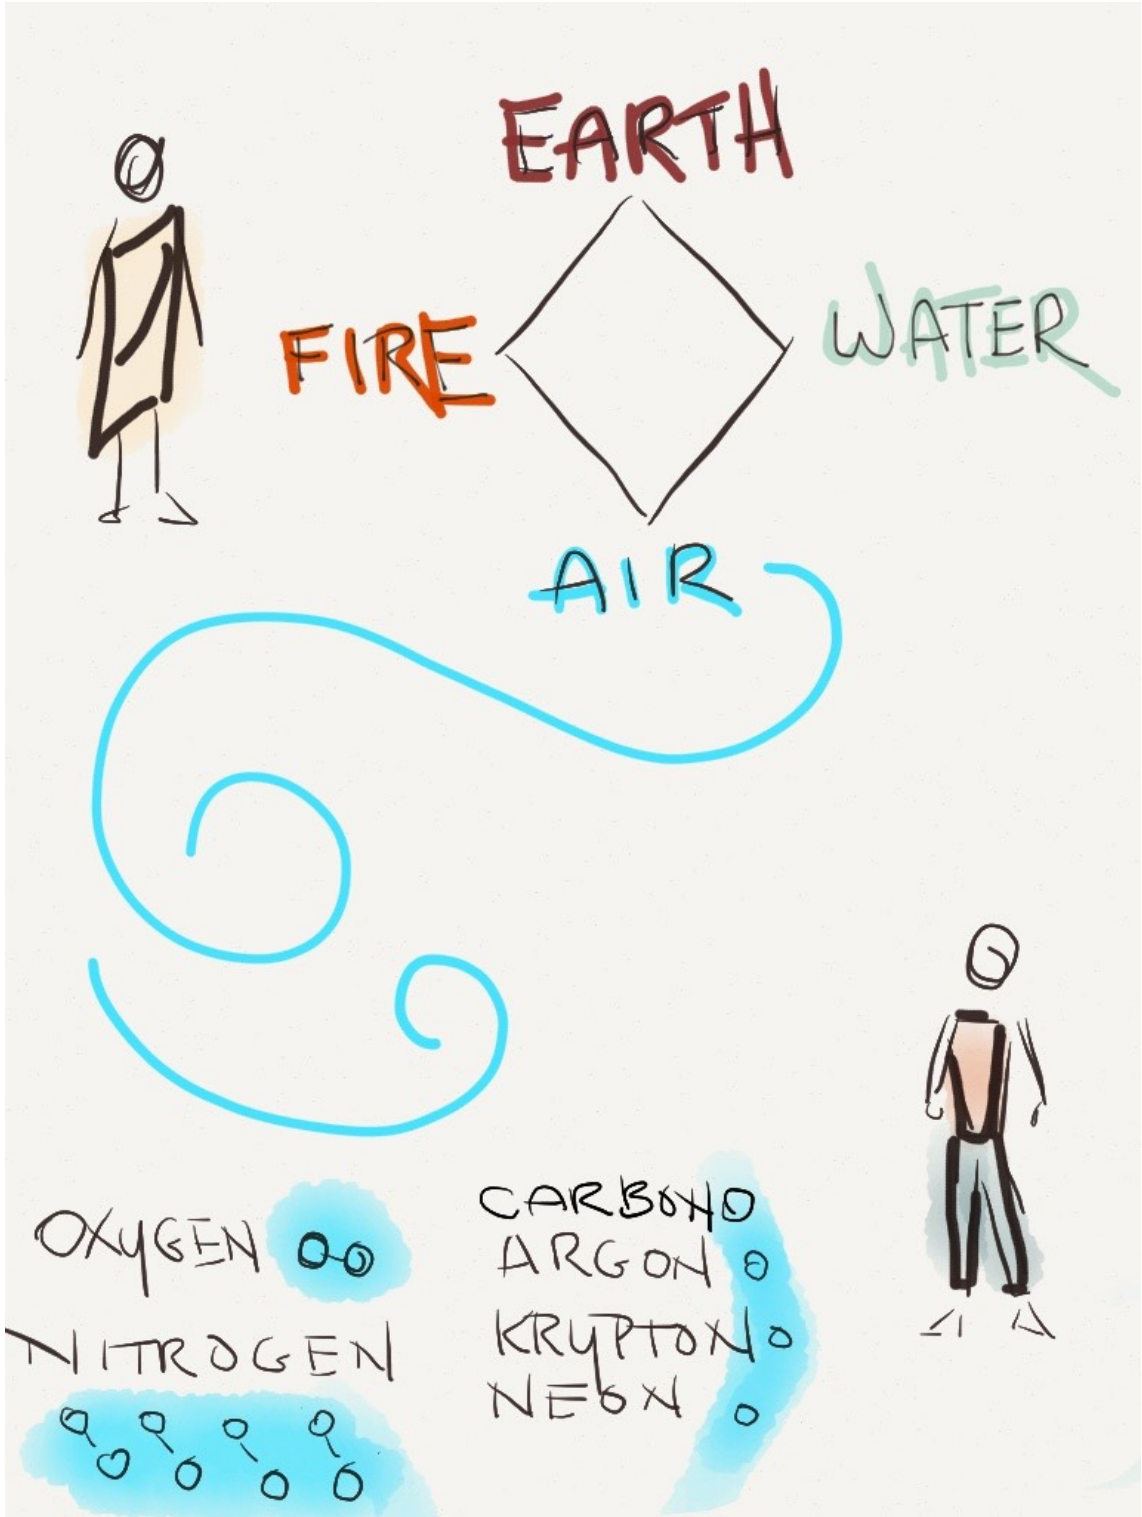 EARTH
FIRE
WATER
AIR
OXYGEN
NITROGEN
CARBON
ARGON
KRYPTON
NEON